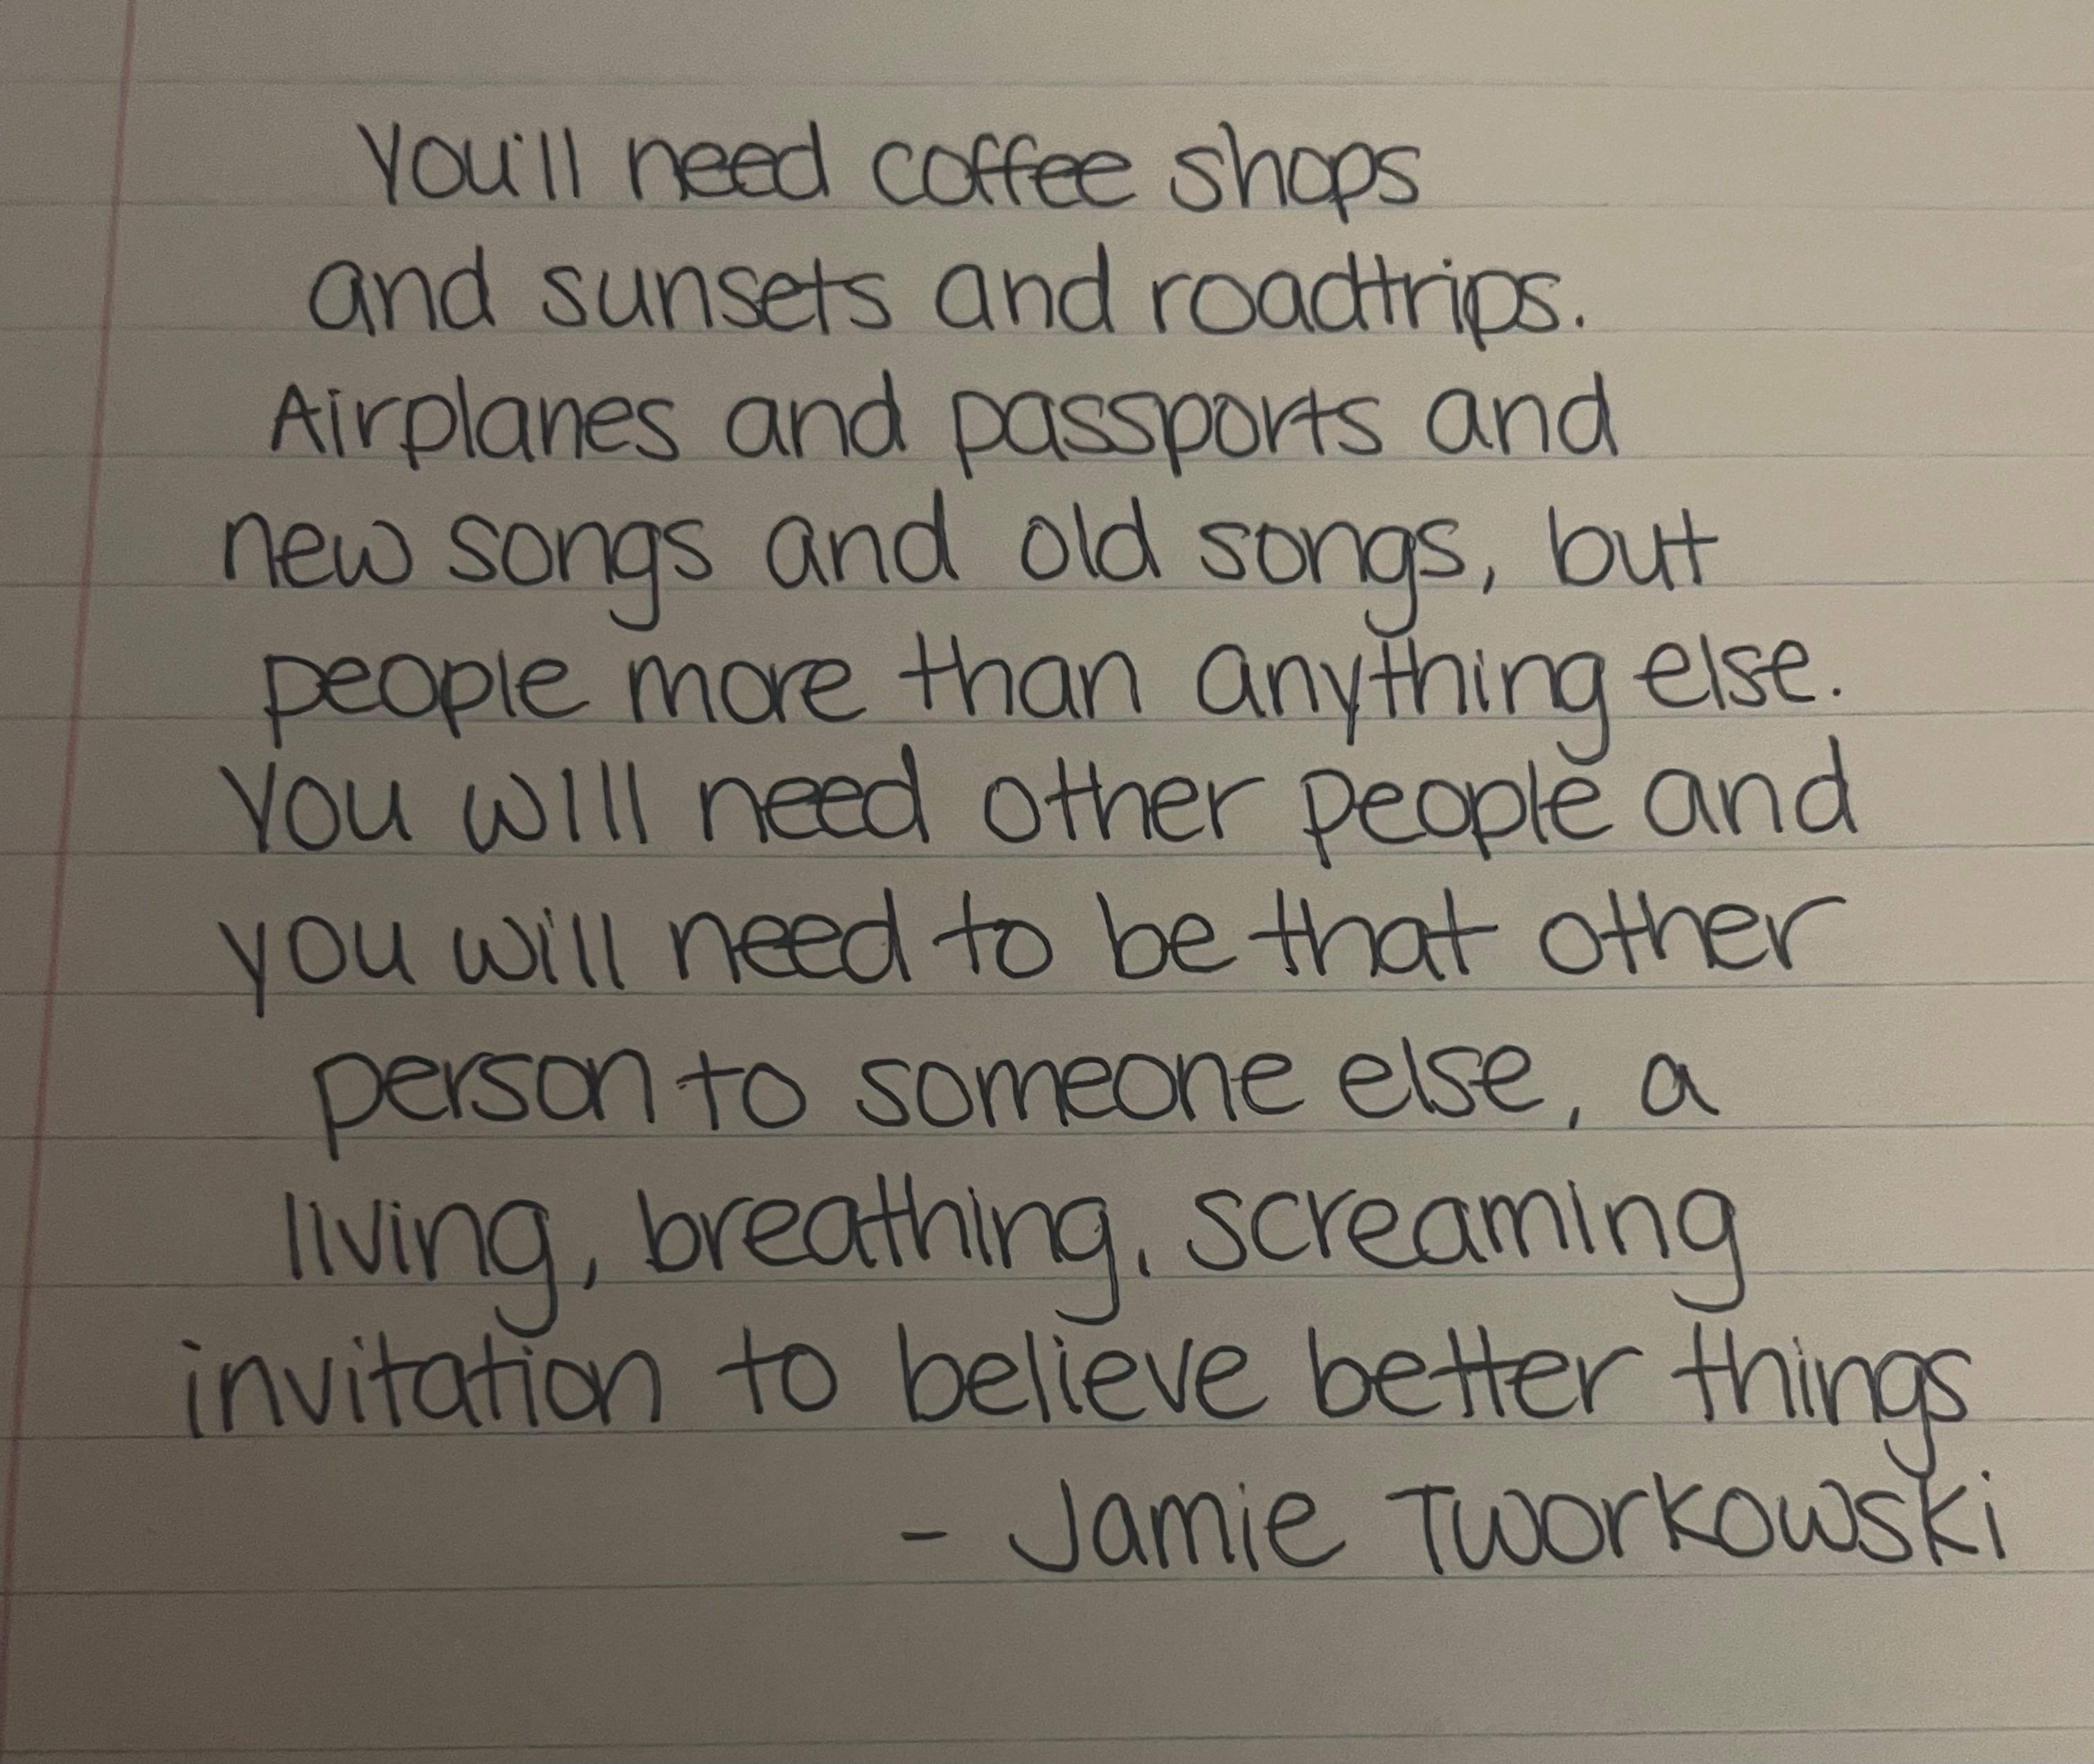 You'll need coffee shops
and sunsets and roadtrips.
Airplanes and passports and
new songs and old songs, but
people more than anything else.
You will need other people and
you will need to be that other
person to someone else, a
living, breathing, screaming
invitation to believe better things
- Jamie Tworkowski